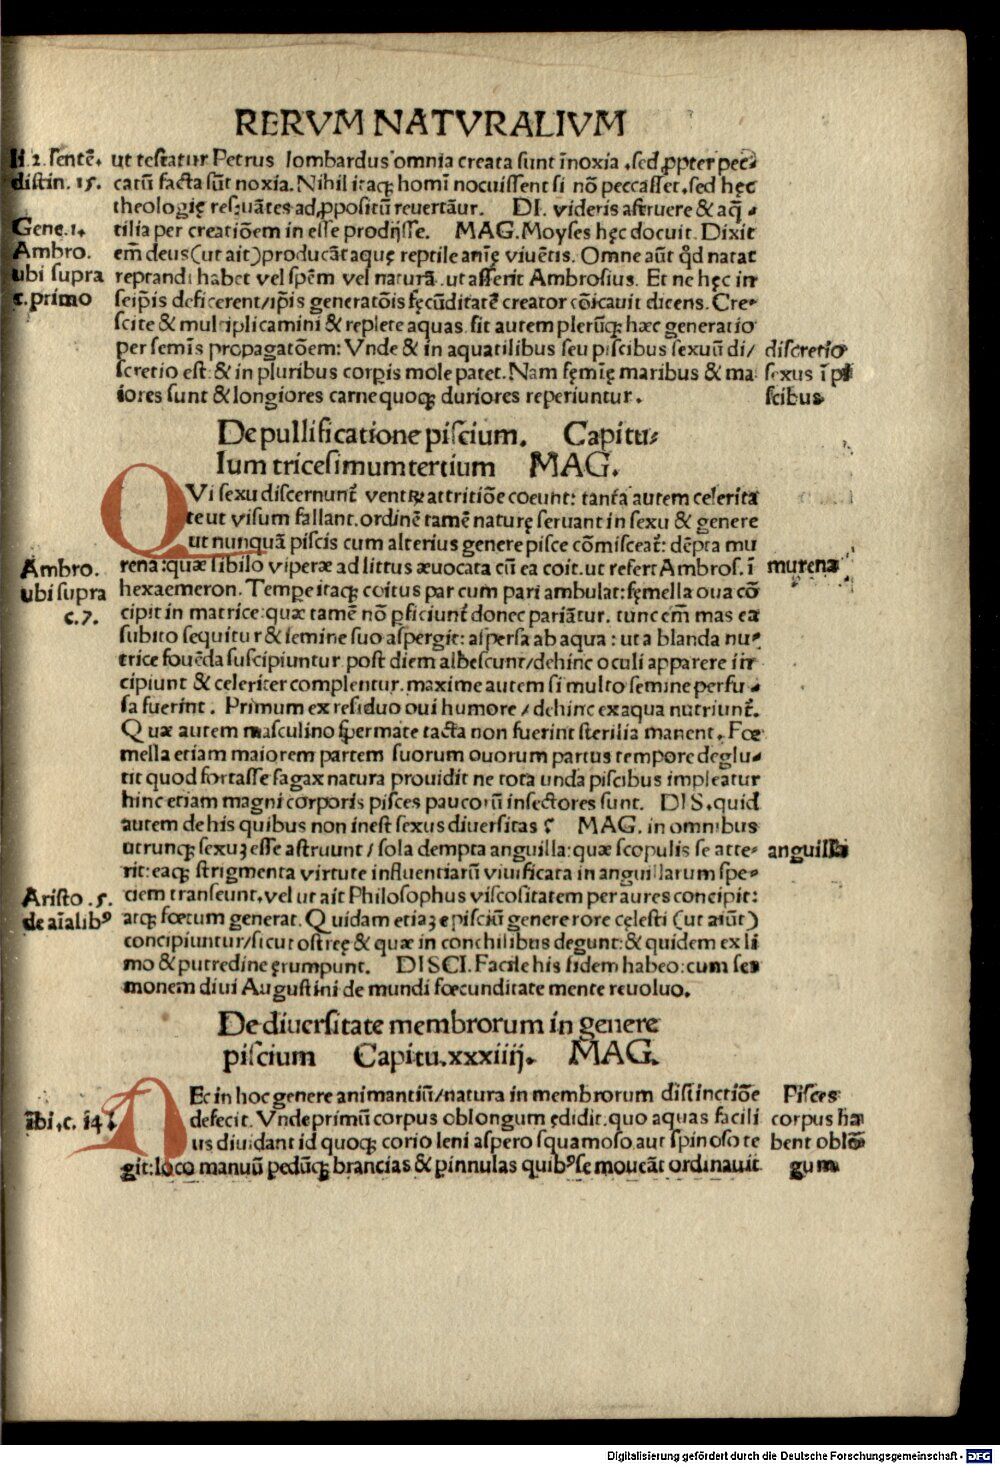 RERVM NATVRALIVM
li.2.sentē. ut testatur Petrus lombardus omnia creata sunt īnoxia .sed ꝓpter pec⸗
distin. 15. catū facta sūt noxia. Nihil itaqꝫ homī nocuissent si nō peccasset .sed hęc
theologię resuātes ad ꝓpositū reuertāur. DI. videris astruere & aq̄ ⸗
Gene.1. tilia per creatiōem in esse prodijsse. MAG. Moyses hęc docuit. Dixit
Ambro. em̄ deus (ut ait) producāt aquę reptile anīę viuētis. Omne aūt qd̄ natat
ubi supra reptandi habet vel spēm vel naturā .ut asserit Ambrosius. Et ne hęc in
c.primo seip̄is deficerent/ip̄is generatōis fęcūditatē creator cōicauit dicens. Cre⸗
scite & multiplicamini & replete aquas. fit autem plerūqꝫ hæc generatio
per semīs propagatōem: Vnde & in aquatilibus seu piscibus sexuū di/ discretio
scretio est: & in pluribus corpis mole patet. Nam fęmīę maribus & ma sexus ī pi
iores sunt & longiores carne quoqꝫ duriores reperiuntur. scibus
De pullificatione piscium. Capitu⸗
lum tricesimumtertium MAG.
QVi sexu discernunt̄ ventꝝ attritiōe coeunt: tanta autem celerita
te ut visum fallant. ordinē tamē naturę seruant in sexu & genere
ut nunquā piscis cum alterius genere pisce cōmisceat̄: dēpta mu
Ambro. rena: quæ sibilo viperæ ad littus æuocata cū ea coit. ut refert Ambros. ī murena
ubi supra hexaemeron. Tempe itaqꝫ coitus par cum pari ambulat: fęmella oua cō
c.7. cipit in matrice: quæ tamē nō ꝓficiunt̄ donec pariātur. tunc em̄ mas ea
subito sequitur & semine suo aspergit: aspersa ab aqua: ut a blanda nu⸗
trice fouēda suscipiuntur post diem albescunt/dehinc oculi apparere in
cipiunt & celeriter complentur. maxime autem si multo semine perfu⸗
sa fuerint. Primum ex residuo oui humore/dehinc ex aqua nutriunt̄.
Quæ autem masculino spermate tacta non fuerint sterilia manent. Fœ
mella etiam maiorem partem suorum ouorum partus tempore deglu⸗
tit quod fortasse sagax natura prouidit ne tota unda piscibus impleatur
hinc etiam magni corporis pisces paucorū insectores sunt. DIS. quid
autem de his quibus non inest sexus diuersitas? MAG. in omnibus
utrunqꝫ sexuꝫ esse astruunt/sola dempta anguilla: quæ scopulis se atte⸗ anguilla
rit: eaqꝫ strigmenta virtute influentiarū viuificata in anguillarum spe⸗
Aristo .5. ciem transeunt. vel ut ait Philosophus viscositatem per aures concipit:
de aīalibꝰ atqꝫ fœtum generat. Quidam etiaꝫ e pisciū genere rore cęlesti (ut aiūt)
concipiuntur/sicut ostreę & quæ in conchilibus degunt: & quidem ex li
mo & putredine ęrumpunt. DISCI. Facile his fidem habeo: cum ser
monem diui Augustini de mundi fœcunditate mente reuoluo.
De diuersitate membrorum in genere
piscium Capitu.xxxiiij. MAG.
NEc in hoc genere animantiū/natura in membrorum distinctiōe Pisces
ībi .c. 14 defecit. Vnde primū corpus oblongum ędidit. quo aquas facili corpus ha
us diuidant id quoqꝫ corio leni aspero squamoso. aut spinoso te bent oblō
git: loco manuū pedūqꝫ brancias & pinnulas quibꝰ se moueāt ordinauit gum
Digitalisierung gefördert durch die Deutsche Forschungsgemeinschaft - DFG